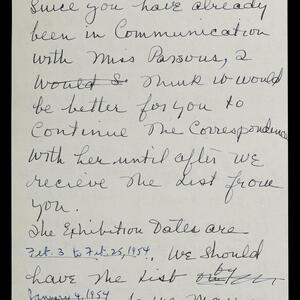 Since you have already
been in Communication
with Miss Parsons, I
Would I Think it would
be better for you to
Continue The Correspondence
With her until after we
recieve The List from
you.
The Exhibition Dates are
Feb. 3 to Feb. 25, 1954. We Should
have The List by
January 4, 1954